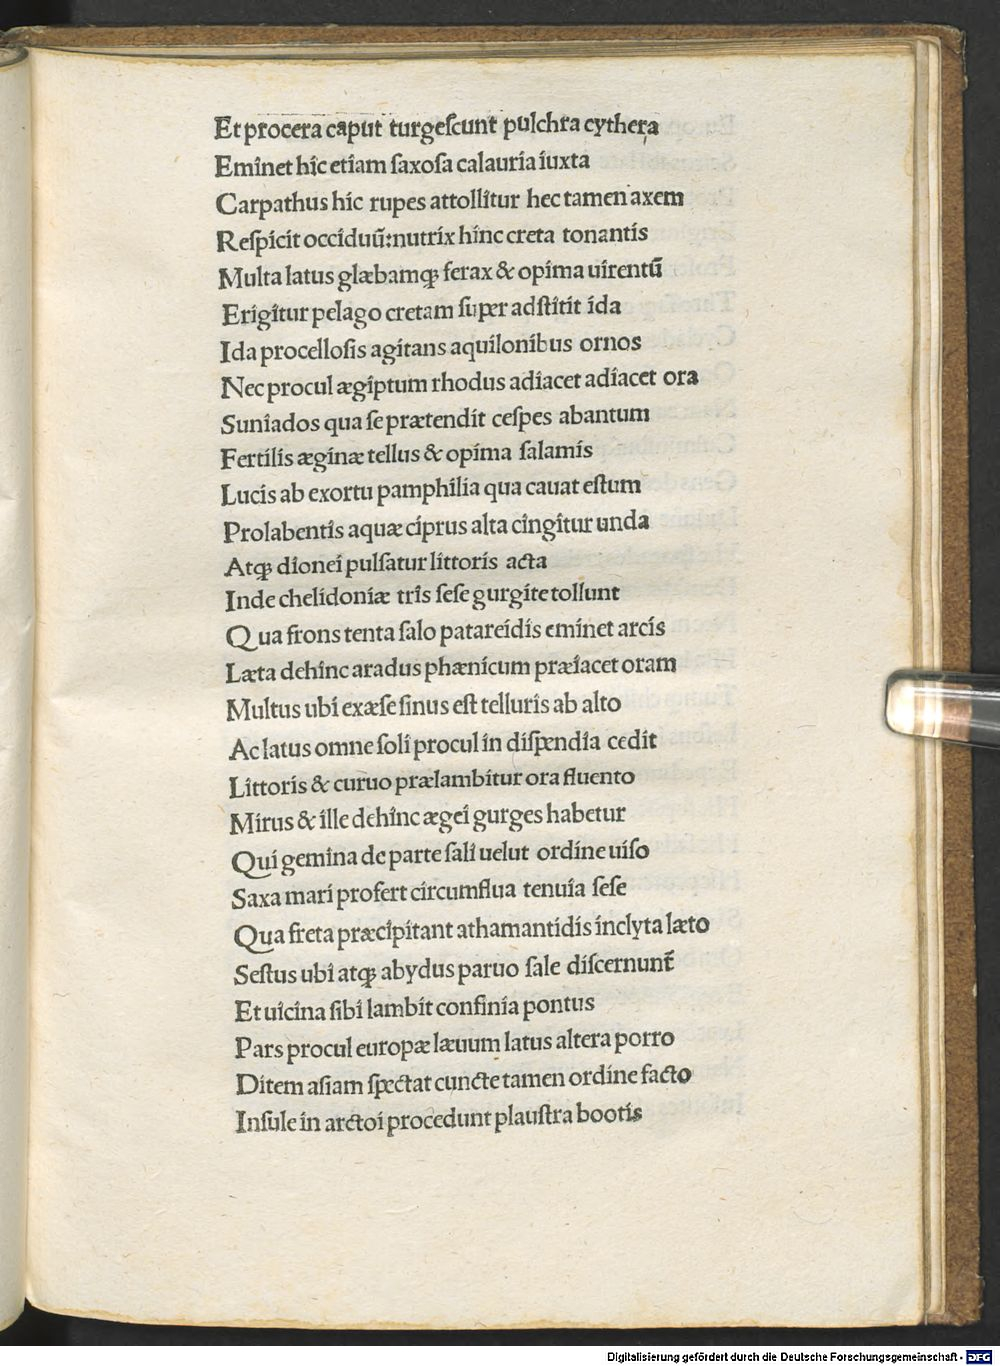 Et procera caput turgeſcunt pulchra cythera
Eminet hic etiam ſaxoſa calauria iuxta
Carpathus hic rupes attollitur hec tamen axem
Reſpicit occiduū:nutrix hinc creta tonantis
Multa latus glæbamqꝫ ferax & opima uirentū
Erigitur pelago cretam ſuper adſtitit ida
Ida procelloſis agitans aquilonibus ornos
Nec procul ægiptum rhodus adiacet adiacet ora
Suniados qua ſe prætendit ceſpes abantum
Fertilis æginæ tellus & opima ſalamis
Lucis ab exortu pamphilia qua cauat eſtum
Prolabentis aquæ ciprus alta cingitur unda
Atqꝫ dionei pulſatur littoris acta
Inde chelidoniæ tris ſeſe gurgite tollunt
Qua frons tenta ſalo patareidis eminet arcis
Læta dehinc aradus phænicum præiacet oram
Multus ubi exæſe ſinus eſt telluris ab alto
Ac latus omne ſoli procul in diſpendia cedit
Littoris & curuo prælambitur ora fluento
Mirus & ille dehinc ægei gurges habetur
Qui gemina de parte ſali uelut ordine uiſo
Saxa mari profert circumflua tenuia ſeſe
Qua freta præcipitant athamantidis inclyta læto
Seſtus ubi atqꝫ abydus paruo ſale diſcernunt̃
Et uicina ſibi lambit confinia pontus
Pars procul europæ læuum latus altera porro
Ditem aſiam ſpectat cuncte tamen ordine facto
Inſule in arctoi procedunt plauſtra bootis
Digitalisierung gefördert durch die Deutsche Forschungsgemeinschaft - DFG